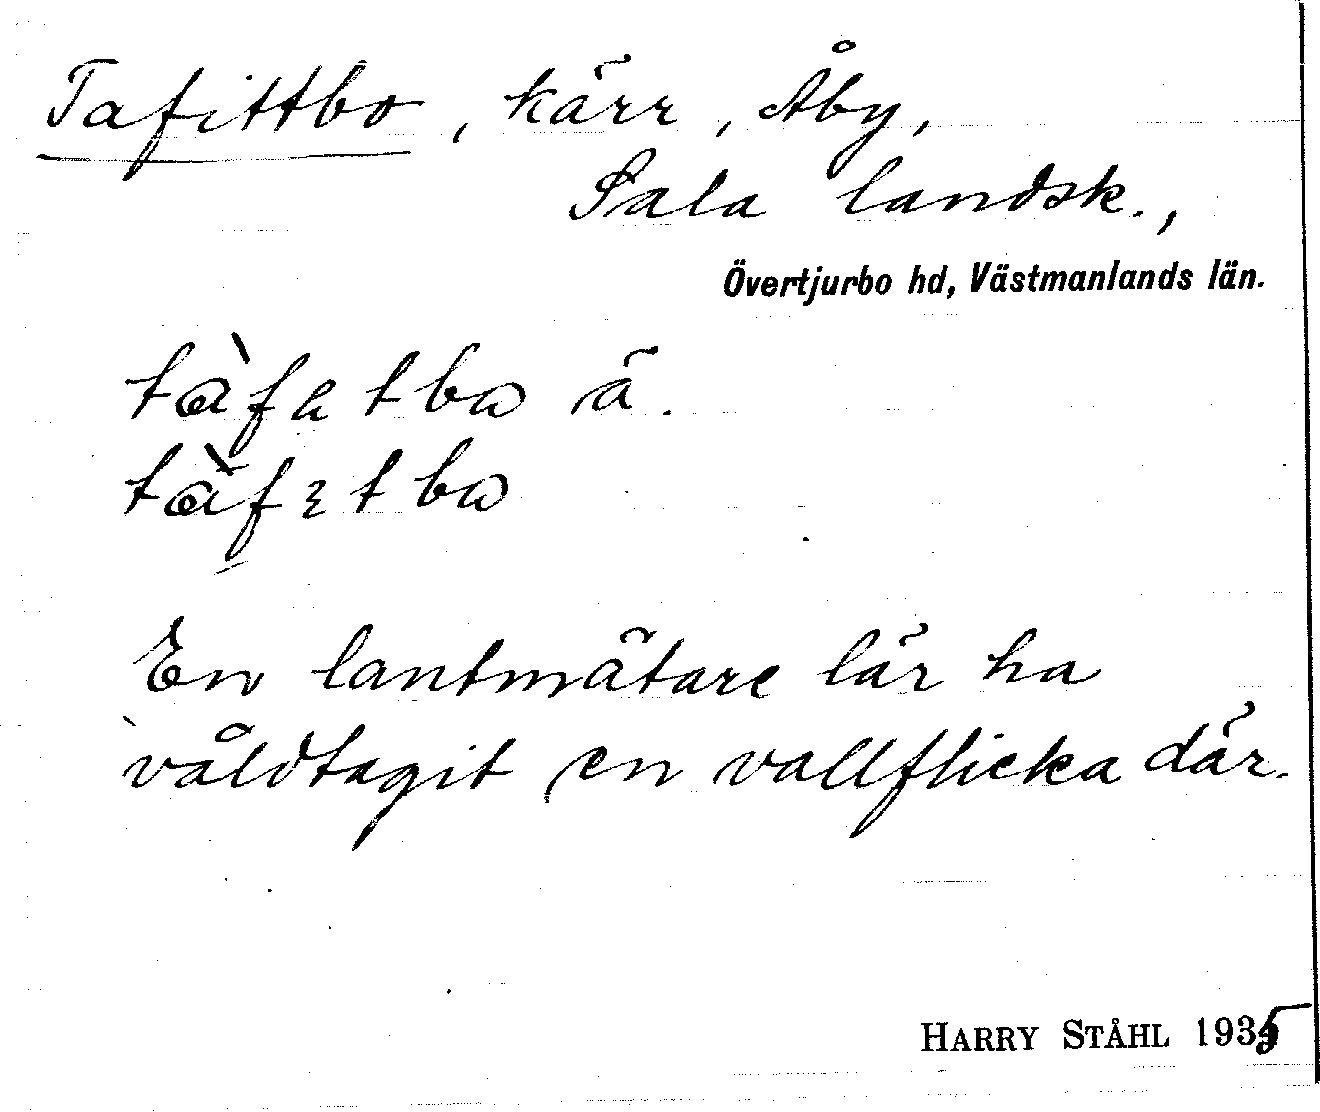 Tafittbo, kärr, Åby,
Sala landsk.,
Övertjurbo hd, Västmanlands län.
ä.
En lantmätare lär ha
våldtagit en vallflicka där.
HARRY STÅHL 1935